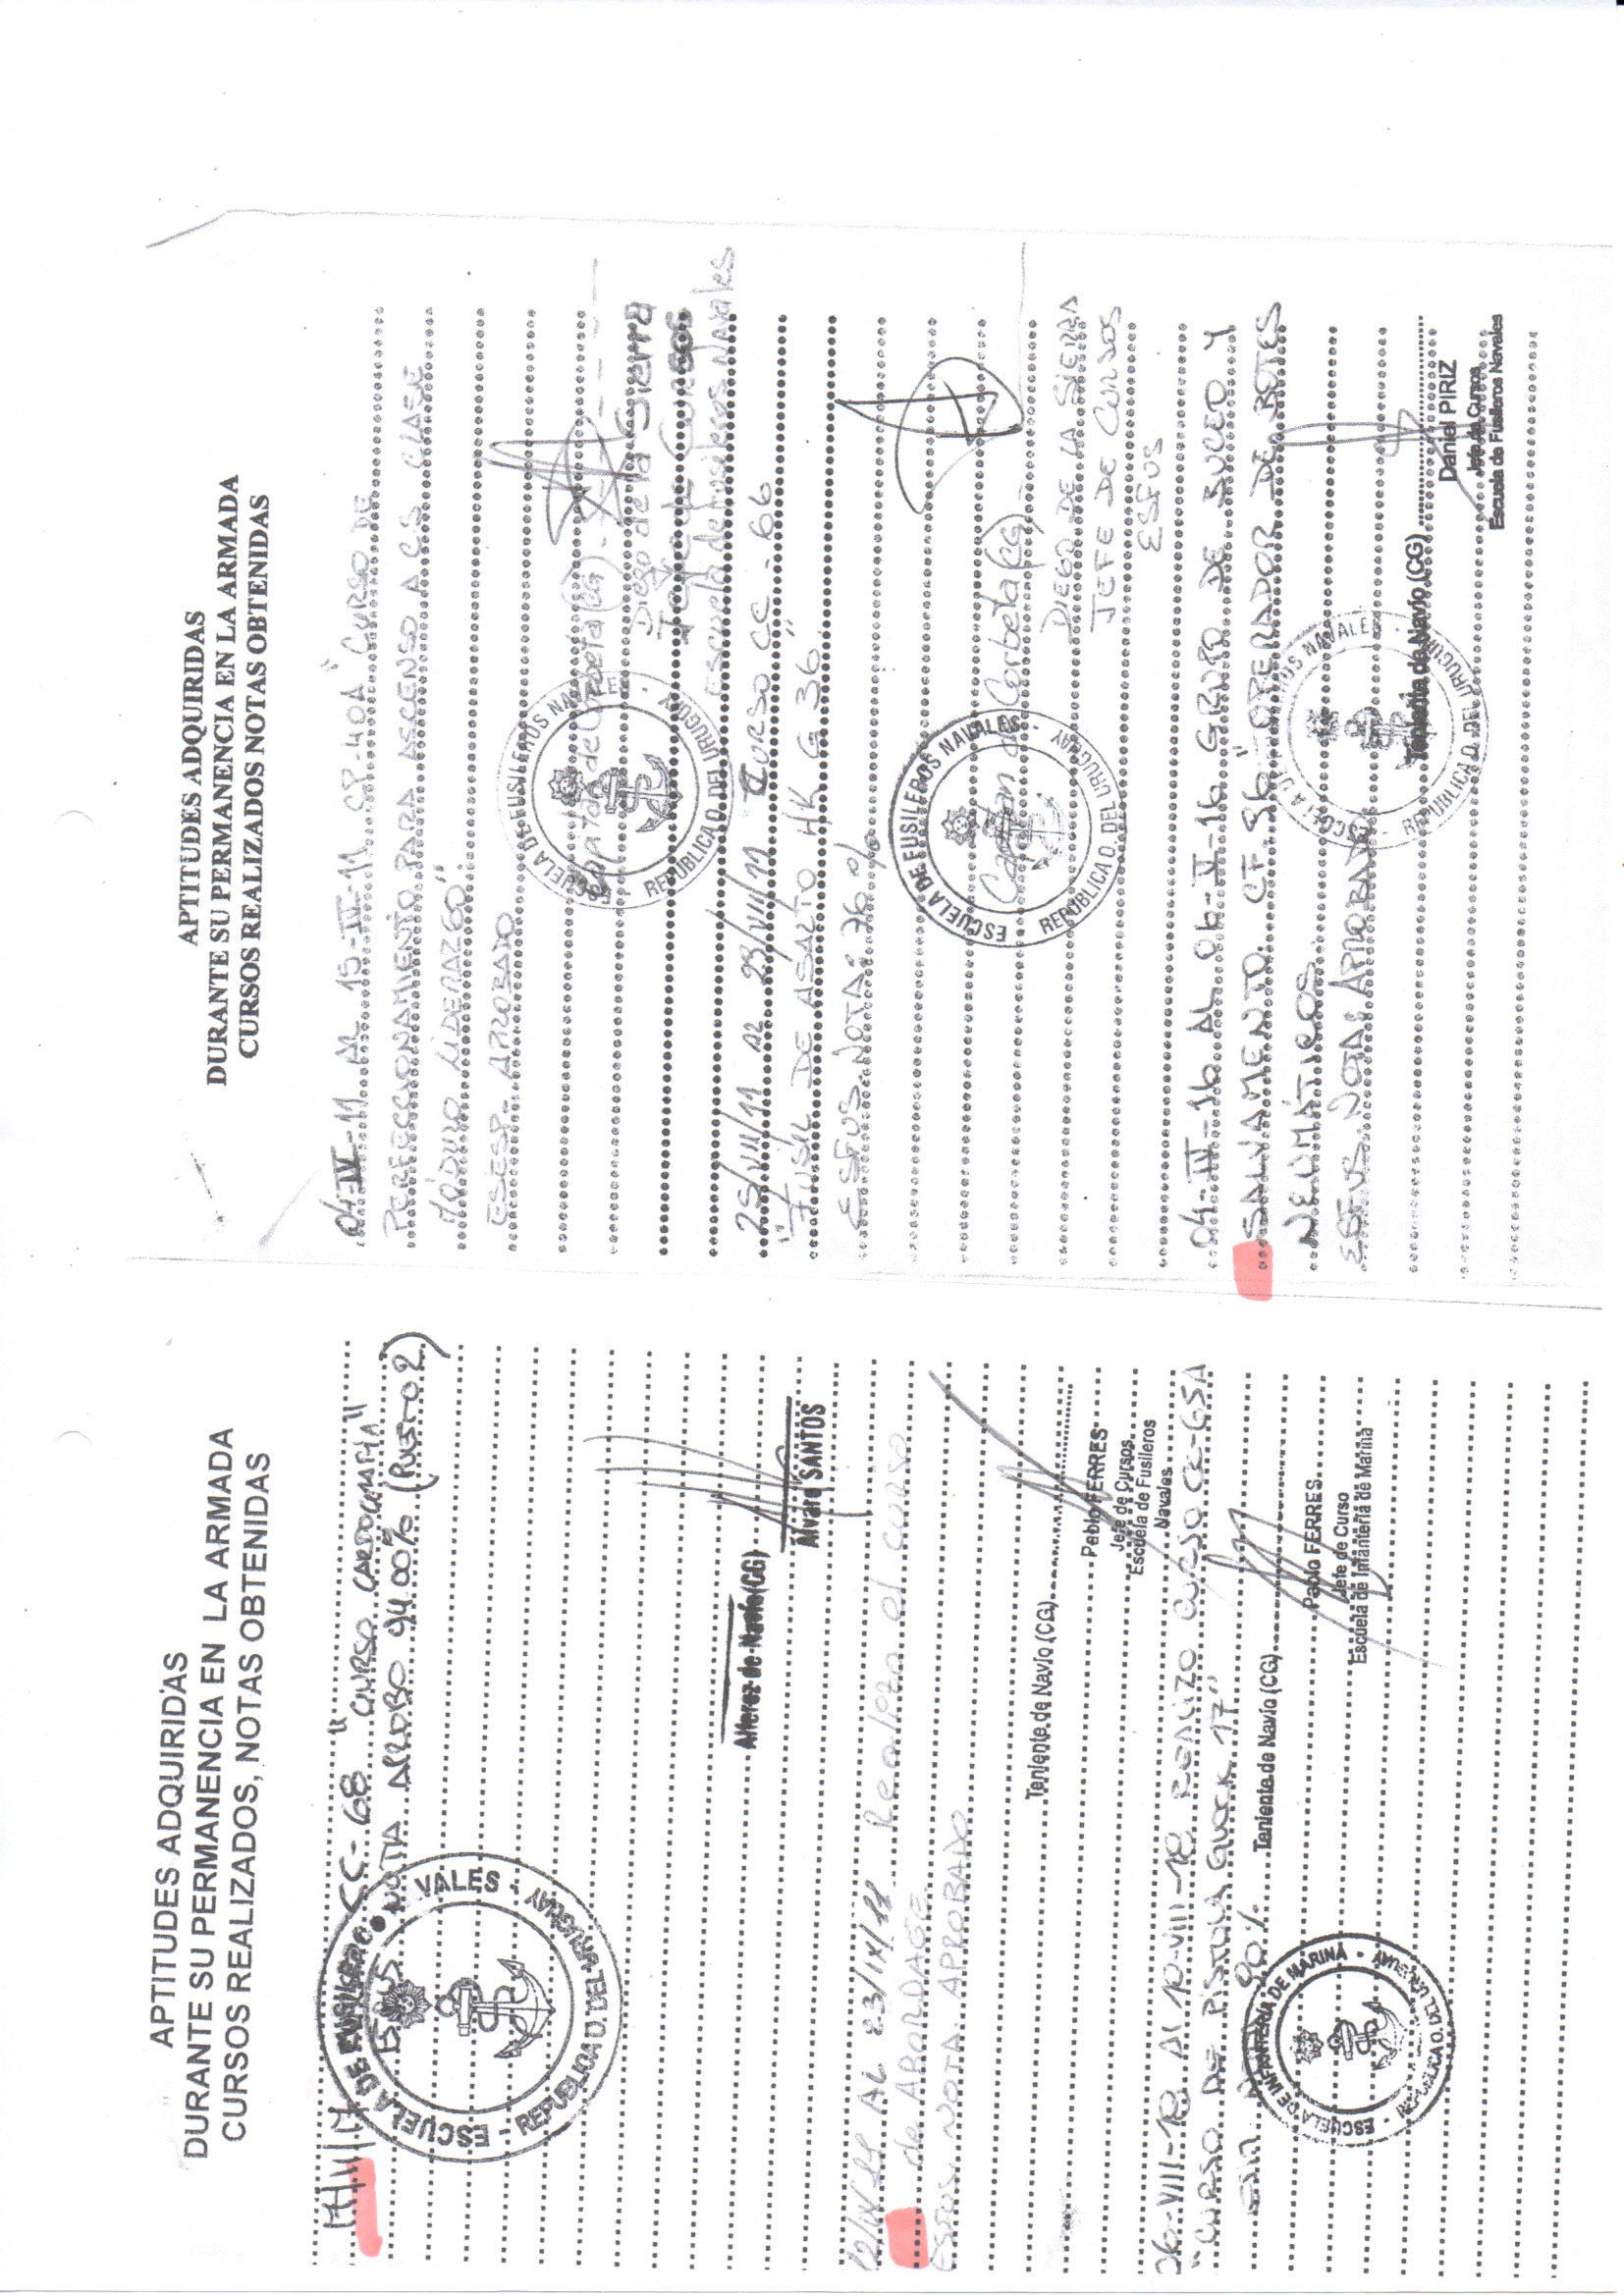 APTITUDES ADQUIRIDAS
DURANTE SU PERMANENCIA EN LA ARMADA
CURSOS REALIZADOS, NOTAS OBTENIDAS
17/11/17 CC-68 "CURSO CARTOGRAFIA"
ESFUS NOTA APROBO 94.00% (PUESTO 2)
ESCUELA DE FUSILEROS NAVALES
REPUBLICA O. DEL URUGUAY
Alferez de Navío (CG)
Alvaro SANTOS
12/IX/11 AL 23/IX/11 Realizo el curso
de ABORDAGE.
ESFUS. NOTA. APROBADO
Teniente de Navío (CG)
Pablo FERRES
Jefe de Cursos
Escuela de Fusileros
Navales
06-VIII-18 Al 10-VIII-18 REALIZO CURSO CC-65A
"CURSO DE PISTOLA GLOCK 17"
NOTA 90%
Teniente de Navío (CG)
Pablo FERRES
Jefe de Curso
Escuela de Infantería de Marina
ESCUELA DE INFANTERÍA DE MARINA
REPUBLICA O. DEL URUGUAY
APTITUDES ADQUIRIDAS
DURANTE SU PERMANENCIA EN LA ARMADA
CURSOS REALIZADOS NOTAS OBTENIDAS
04-IV-11 AL 15-IV-11 CP-40A "CURSO DE
PERFECCIONAMIENTO PARA ASCENSO A C.S. CLASE
MÓDULO LIDERAZGO".
ESESP. APROBADO
ESCUELA DE FUSILEROS NAVALES
REPUBLICA O. DEL URUGUAY
Capitan de Corbeta (CG)
Diego de la Sierra
Jefe de Cursos
Escuela de Fusileros Navales
25/VII/11 AL 29/VII/11 CURSO CC-66
"FUSIL DE ASALTO HK G 36"
ESFUS. NOTA: 76%
ESCUELA DE FUSILEROS NAVALES
REPUBLICA O. DEL URUGUAY
Capitan de Corbeta (CG)
DIEGO DE LA SIERRA
JEFE DE CURSOS
ESFUS
04-IV-16 AL 06-V-16 GRUPO DE BUCEO Y
SALVAMENTO. CF.96 "OPERADOR DE BOTES
NEUMÁTICOS.
ESFUS. NOTA: APROBADO.
ESCUELA DE FUSILEROS NAVALES
REPUBLICA O. DEL URUGUAY
Teniente de Navío (CG)
Daniel PIRIZ
Jefe de Cursos
Escuela de Fusileros Navales